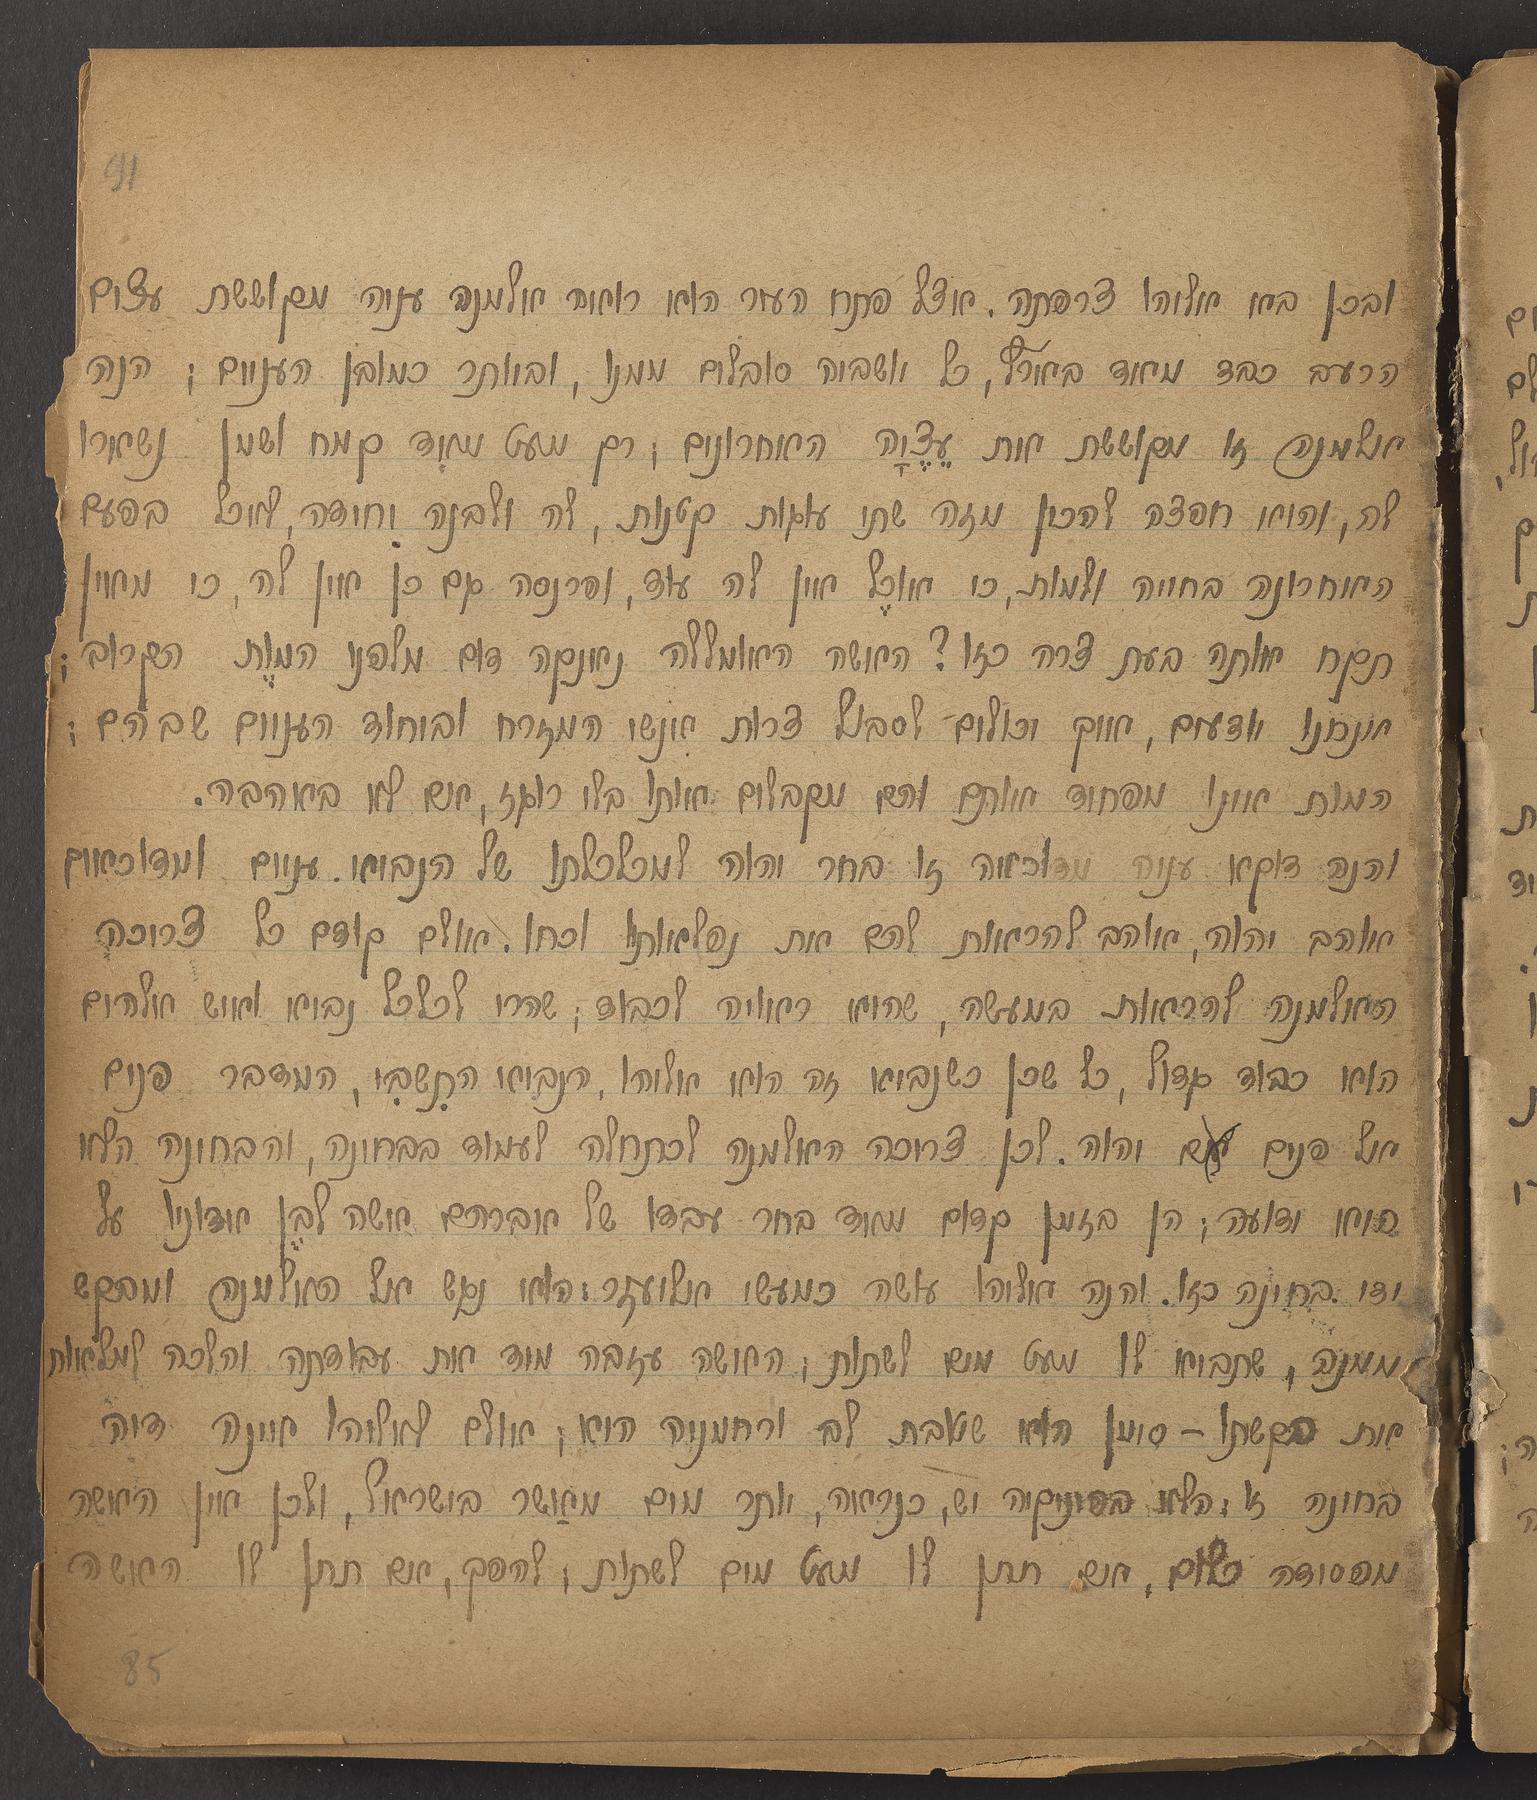 91
ובכן בא אליהו צרפתה. אצל פתח העיר הוא רואה אלמנה עניה מקוששת עצים
הרעב כבד מאד בארץ, כל יושביה סובלים ממנו, וביותר כמובן העניים; הנה
אלמנה זו מקוששת את עֵצֶיהָ האחרונים; רק מעט מאד קמח ושמן נשארו
לה, והיא חפצה להכין מזה שתי עוגות קטנות, לה ולבנה יחידה, לאכל בפעם
האחרונה בחייה ולמות, כי אוכֶל אין לה עוד, ופרנסה גם כן אין לה, כי מאין
תקח אותה בעת צרה כזו? האשה האומללה נאנקה דום מלפני המוֶת הקרוב;
אנחנו יודעים, איך יכולים לסבול צרות אנשי המזרח וביחוד העניים שבהם;
המות אינו מפחיד אותם והם מקבלים אותו בלי רוגז, אם לא באהבה.
והנה דוקא עניה מדוכאה זו בחר יהוה למכלכלתו של הנביא. עניים ומדוכאים
אוהב יהוה, אוהב להראות להם את נפלאותיו וכחו. אולם קודם כל צריכה
האלמנה להראות במעשה, שהיא ראויה לכבוד; שהרי לכלכל נביא ואיש אלהים
הוא כבוד גדול, כל שכן כשנביא זה הוא אליהו, הנביא התִשבִי, המדבר פנים
אל פנים עם יהוה. לכן צריכה האלמנה לכתחלה לעמוד בבחינה, והבחינה הלא
היא ידועה; הן בזמן קדום מאד בחר עבדו של אברהם אשה לבֶן אדוניו על
ידי בחינה כזו. והנה אליהו עושה כמעשי אליעזר: הוא נגש אל האלמנה ומבקש
ממנה, שתביא לו מעט מים לשתות; האשה עזבה מיד את עבודתה והלכה למלאות
את בקשתו – סימן הוא שטובת לב ורחמניה היא; אולם לאליהו אינה דיה
בחינה זו: הלא בפיניקיה יש, כנראה, יותר מים מאשר בישראל, ולכן אין האשה
מפסידה כלום, אם תתן לו מעט מים לשתות; להפך, אם תתן לו האשה
85